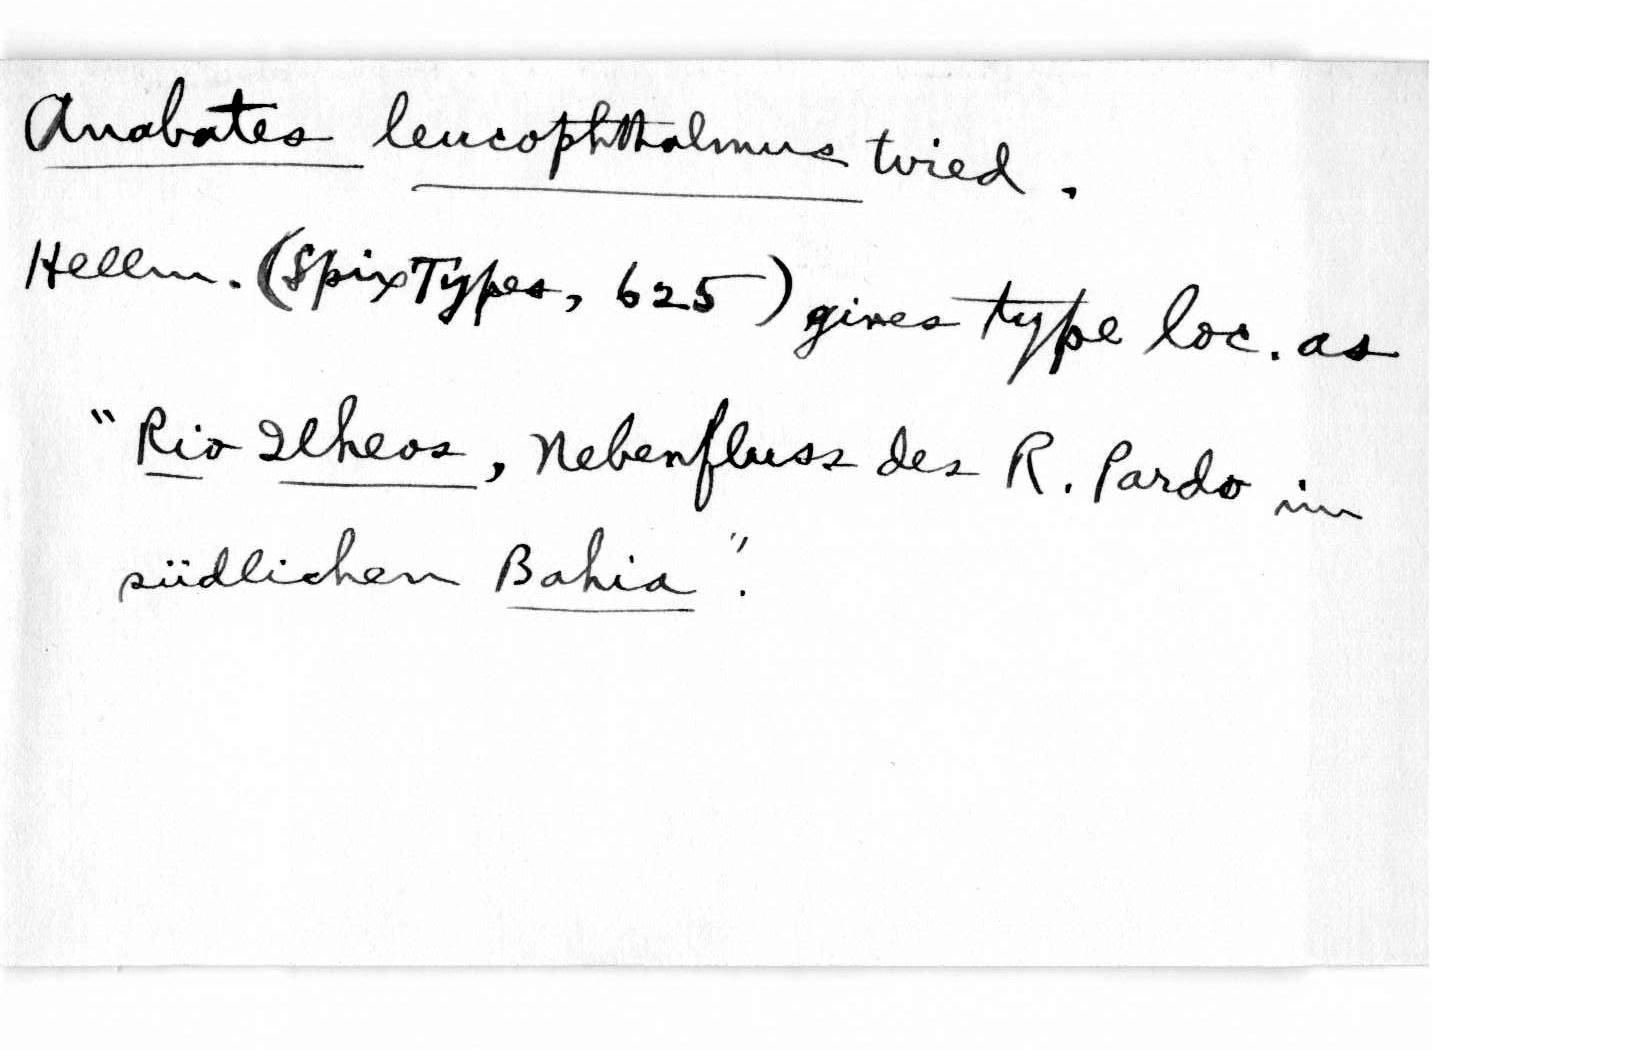 Anabates leucophthalmus Wied.
Hellm. (Spix Types, 625) gives type loc. as
"Rio Ilheos, Nebenfluss des R. Pardo im
südlichen Bahia".